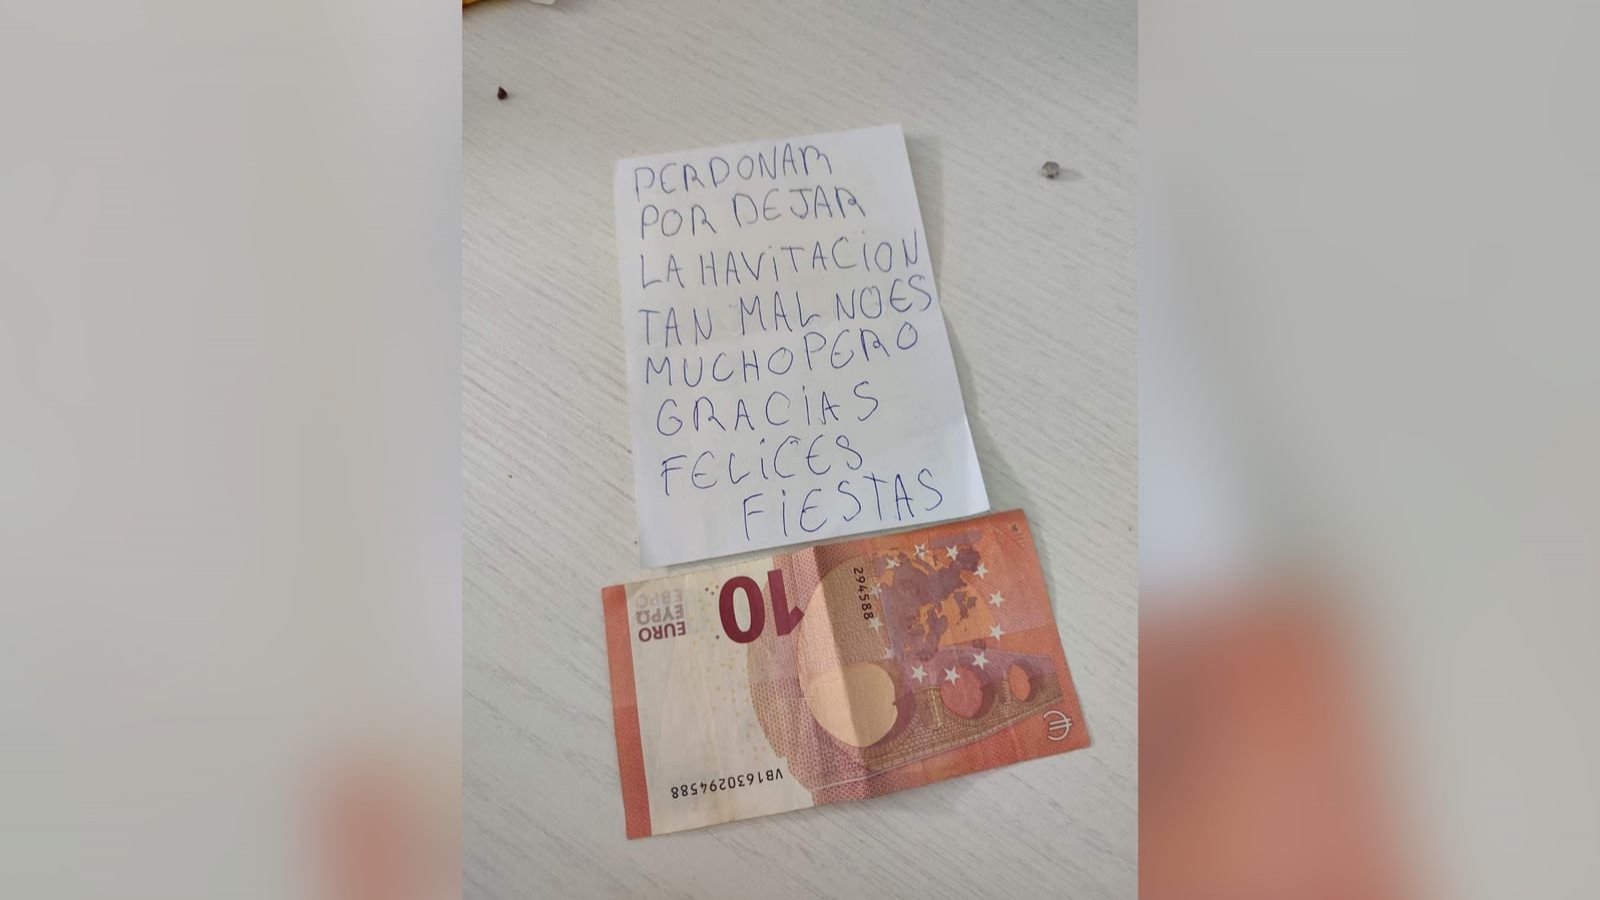 PERDONAR
POR DEJAR
LA HAVITACION
TAN MAL NO ES
MUCHO PERO
GRACIAS
FELICES
FIESTAS
294588
10
EURO
ΕΥΡΩ
ЕВРО
VB1630294588
€